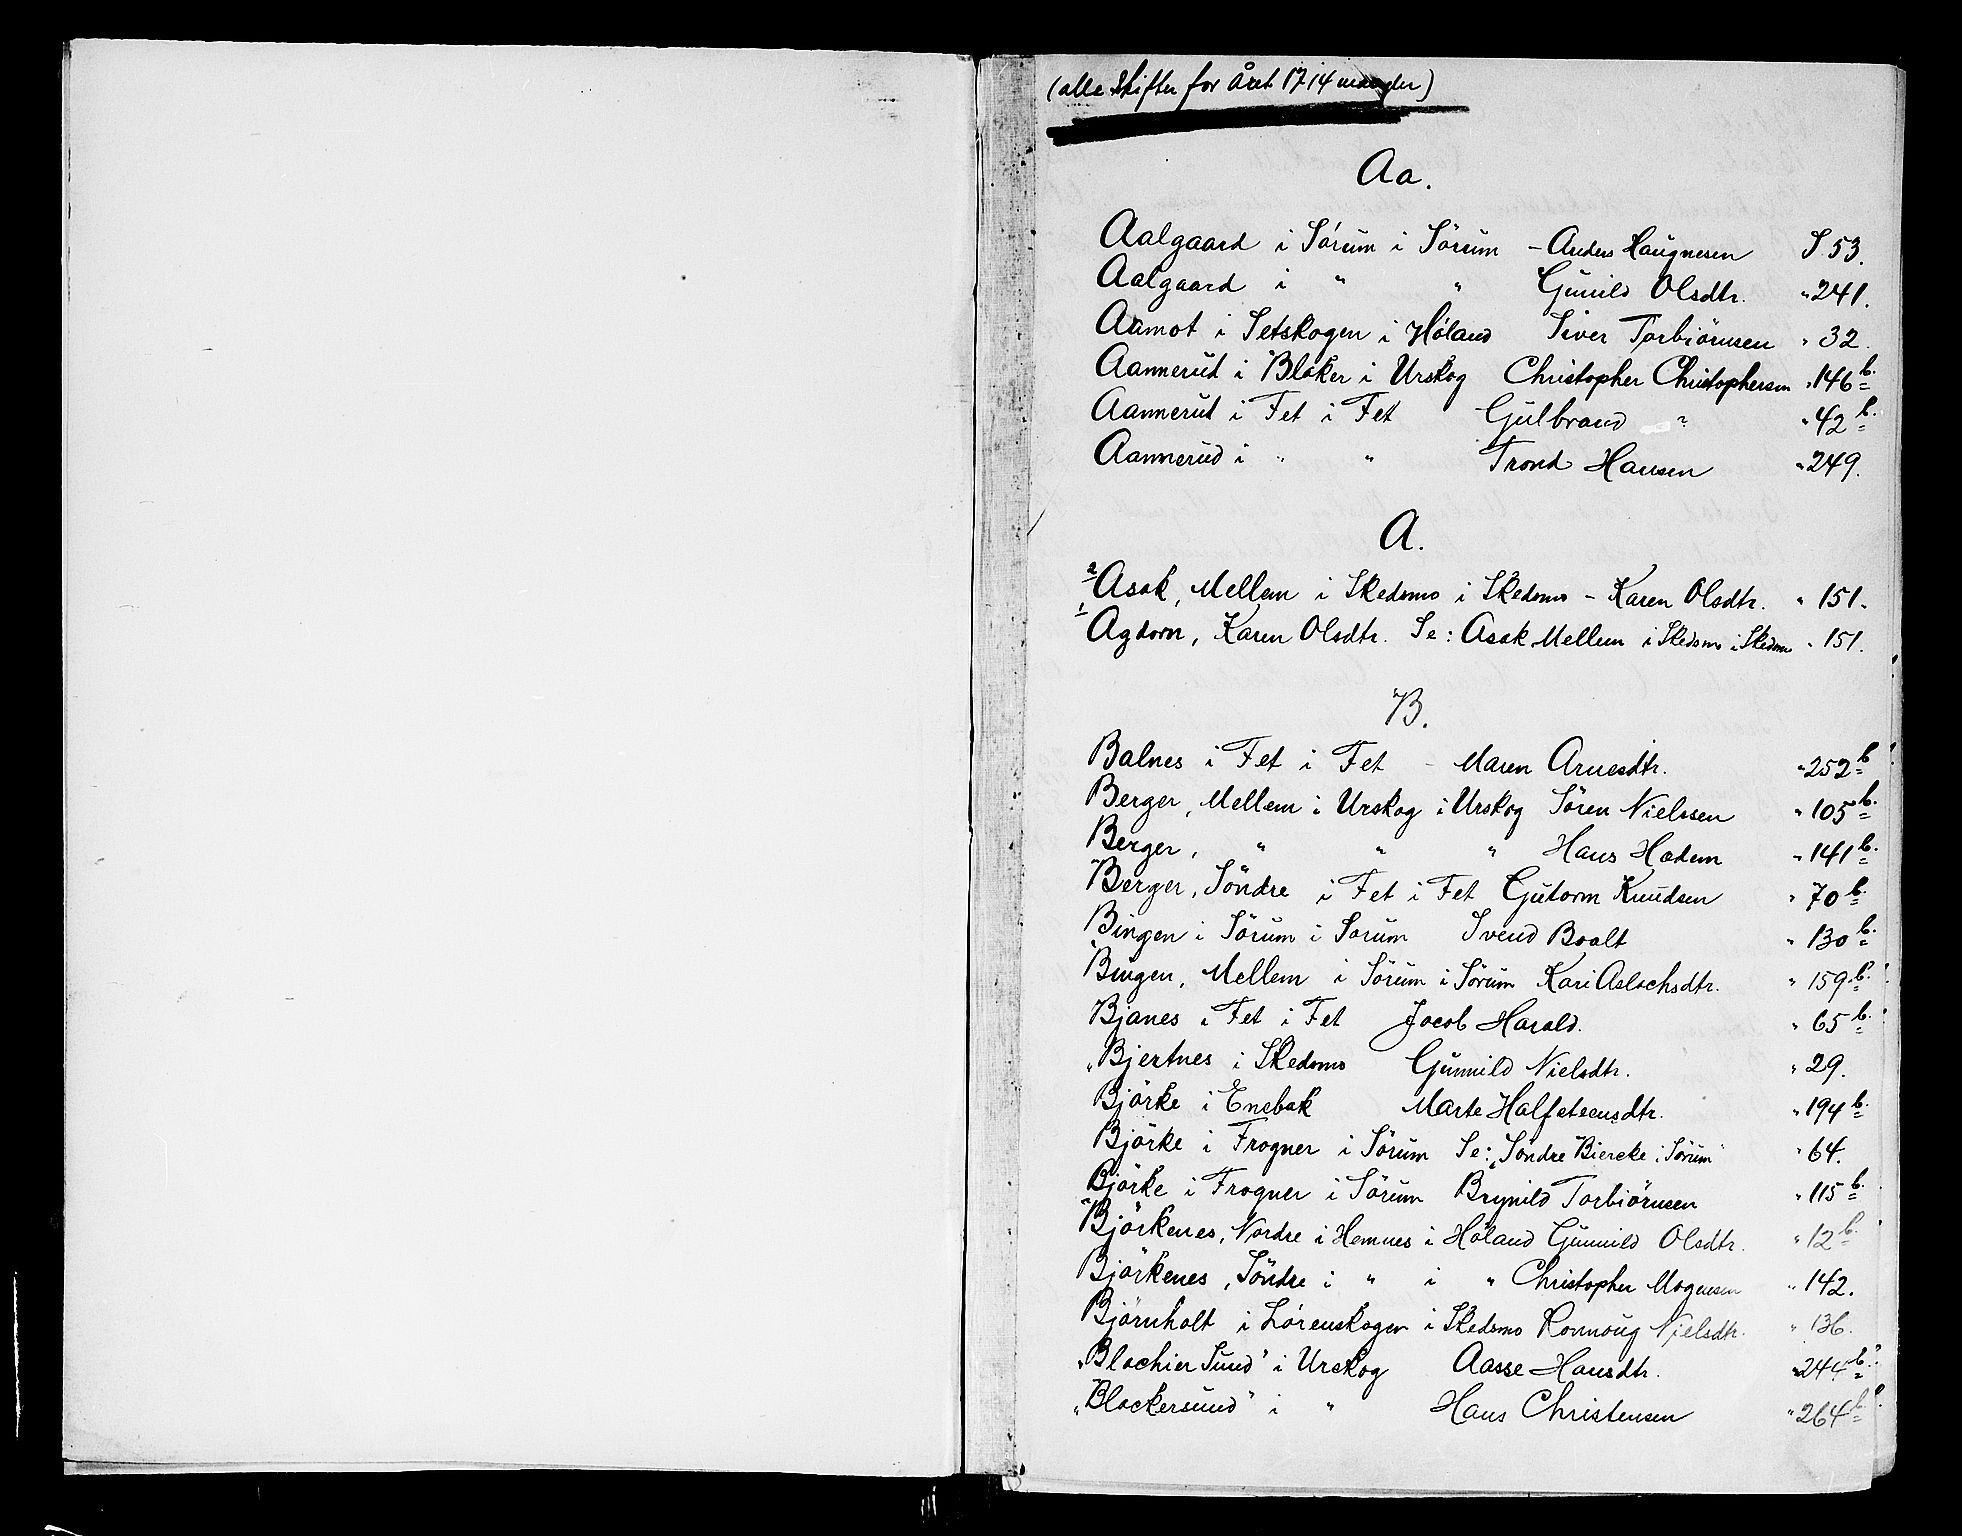 (alle skifter for året 1714 mangler)
Aa.
Aalgaard i Sørum i Sørum - Anders Haugnesen S. 53.
Aalgaard i " " Gunild Olsdtr. " 241.
Aamot i Setskogen i Høland Siver Torbiörnsen " 32.
Aannerud i Blaker i Urskog Christopher Christophersen " 146 b.
Aannerud i Fet i Fet Gulbrand ? " 42 b.
Aannerud i " " Trond Hansen " 249.
A.
2 Asak, Mellem i Skedsmo i Skedsmo - Karen Olsdtr. " 151.
1 Agdorn, Karen Olsdtr. Se: Asak, Mellem i Skedsmo i Skedsmo " 151.
B.
Balnes i Fet i Fet - Maren Arnesdtr. " 252 b
Berger, Mellem i Urskog i Urskog Sören Nielssen " 105 b.
Berger, " " " Hans Hadem " 141 b.
Berger, Söndre i Fet i Fet Gutorm Knudsen " 70 b.
Bingen i Sörum i Sorum Svend Boalt " 130 b.
Bingen, Mellem i Sörum i Sørum Kari Aslachsdtr. " 159 b.
Bjanes i Fet i Fet Jacob Harald. " 65 b.
"Bjertnes i Skedsmo Gunnild Nielsdtr. " 29.
Björke i Enebak Marte Halfsteensdtr. " 194 b.
Björke i Frogner i Sörum Se: "Söndre Biercke i Sörum" " 64.
Björke i Frogner i Sörum Brynild Torbiörnsen " 115 b.
Björkenes, Nordre i Hemnes i Höland Gunnild Olsdtr. " 12 b.
Björkenes, Söndre i " i " Christopher Mognesen " 142.
Björnholt i Lørenskogen i Skedsmo Ronnoug Nielsdtr. " 136.
"Blachier Sund" i Urskog Aasse Hansdtr. " 244 b.
"Blackersund" i " Hans Christensen " 264 b.